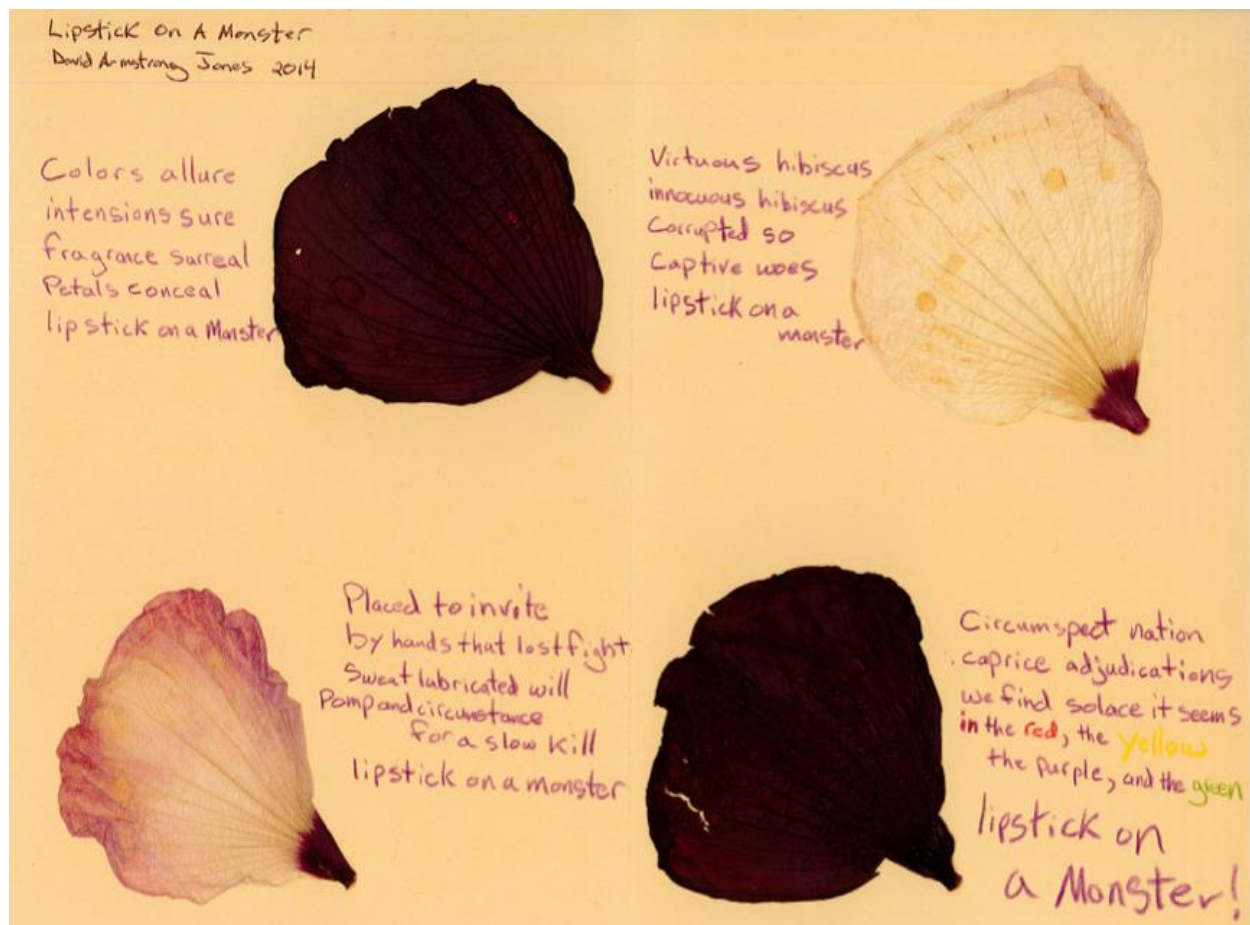 Lipstick On A Monster
David Armstrong Jones 2014
Colors allure
intensions sure
fragrance surreal
Petals conceal
lipstick on a Monster
Virtuous hibiscus
innocuous hibiscus
Corrupted so
Captive woes
lipstick on a
monster
Placed to invite
by hands that lost fight
Sweat lubricated will
Pomp and circumstance
for a slow kill
lipstick on a monster
Circumspect nation
caprice adjudications
we find solace it seems
in the red, the yellow
the purple, and the green
lipstick on
a Monster!